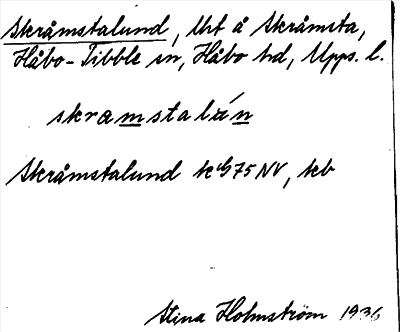 Skråmstalund, lht å Skråmsta,
Håbo-Tibble sn, Håbo hd, Upps. l.
skramstalún
Skråmstalund 75 NV, kb
Stina Holmström 1936